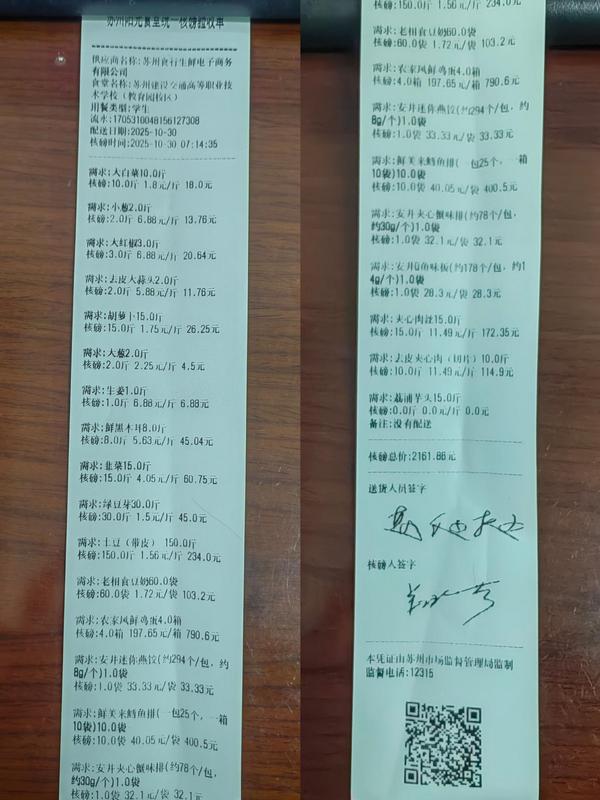 苏州阳光食堂统一核磅验收单
供应商名称:苏州食行生鲜电子商务
有限公司
食堂名称:苏州建设交通高等职业技
术学校（教育园校区）
用餐类型:学生
流水:1705310048156127308
配送日期:2025-10-30
核磅时间:2025-10-30 07:14:35
需求:大白菜10.0斤
核磅:10.0斤 1.8元/斤 18.0元
需求:小葱2.0斤
核磅:2.0斤 6.88元/斤 13.76元
需求:大红椒3.0斤
核磅:3.0斤 6.88元/斤 20.64元
需求:去皮大蒜头2.0斤
核磅:2.0斤 5.88元/斤 11.76元
需求:胡萝卜15.0斤
核磅:15.0斤 1.75元/斤 26.25元
需求:大葱2.0斤
核磅:2.0斤 2.25元/斤 4.5元
需求:生姜1.0斤
核磅:1.0斤 6.88元/斤 6.88元
需求:鲜黑木耳8.0斤
核磅:8.0斤 5.63元/斤 45.04元
需求:韭菜15.0斤
核磅:15.0斤 4.05元/斤 60.75元
需求:绿豆芽30.0斤
核磅:30.0斤 1.5元/斤 45.0元
需求:土豆（带皮） 150.0斤
核磅:150.0斤 1.56元/斤 234.0元
需求:老相食豆奶60.0袋
核磅:60.0袋 1.72元/袋 103.2元
需求:农家风鲜鸡蛋4.0箱
核磅:4.0箱 197.65元/箱 790.6元
需求:安井迷你燕饺(约294个/包，约
8g/个)1.0袋
核磅:1.0袋 33.33元/袋 33.33元
需求:鲜美来鳕鱼排(一包25个，一箱
10袋)10.0袋
核磅:10.0袋 40.05元/袋 400.5元
需求:安井夹心蟹味排(约78个/包，
约30g/个)1.0袋
核磅:1.0袋 32.1元/袋 32.1元
核磅:150.0斤 1.56元/斤 234.0元
需求:老相食豆奶60.0袋
核磅:60.0袋 1.72元/袋 103.2元
需求:农家风鲜鸡蛋4.0箱
核磅:4.0箱 197.65元/箱 790.6元
需求:安井迷你燕饺(约294个/包，约
8g/个)1.0袋
核磅:1.0袋 33.33元/袋 33.33元
需求:鲜美来鳕鱼排(一包25个，一箱
10袋)10.0袋
核磅:10.0袋 40.05元/袋 400.5元
需求:安井夹心蟹味排(约78个/包，
约30g/个)1.0袋
核磅:1.0袋 32.1元/袋 32.1元
需求:安井鱼味板(约178个/包，约1
4g/个)1.0袋
核磅:1.0袋 28.3元/袋 28.3元
需求:夹心肉丝15.0斤
核磅:15.0斤 11.49元/斤 172.35元
需求:去皮夹心肉（切片）10.0斤
核磅:10.0斤 11.49元/斤 114.9元
需求:荔浦芋头15.0斤
核磅:0.0斤 0.0元/斤 0.0元
备注:没有配送
核磅总价:2161.86元
送货人员签字
核磅人签字
本凭证由苏州市场监督管理局监制
监督电话:12315